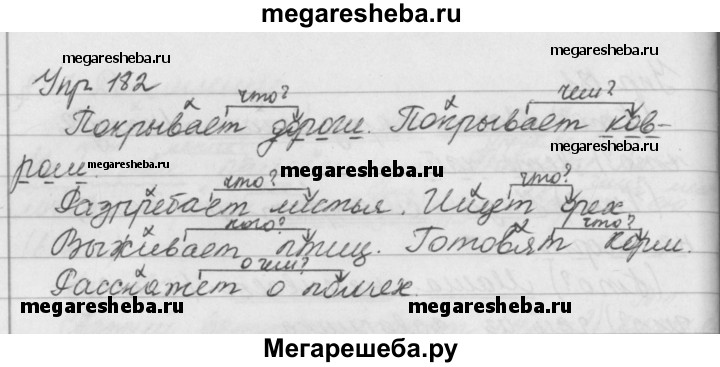 megaresheba.ru
megaresheba.ru
megaresheba.ru
Упр 182
что? чем?
Покрывает дороги. Покрывает ков-
ром.
megaresheba.ru
megaresheba.ru
megaresheba.ru
что? что?
Разгребает листья. Ищут орех
кого? что?
Выживает птиц. Готовят корм.
о чем?
Расскажет о пчёлах.
megaresheba.ru
megaresheba.ru
Мегарешеба.ру